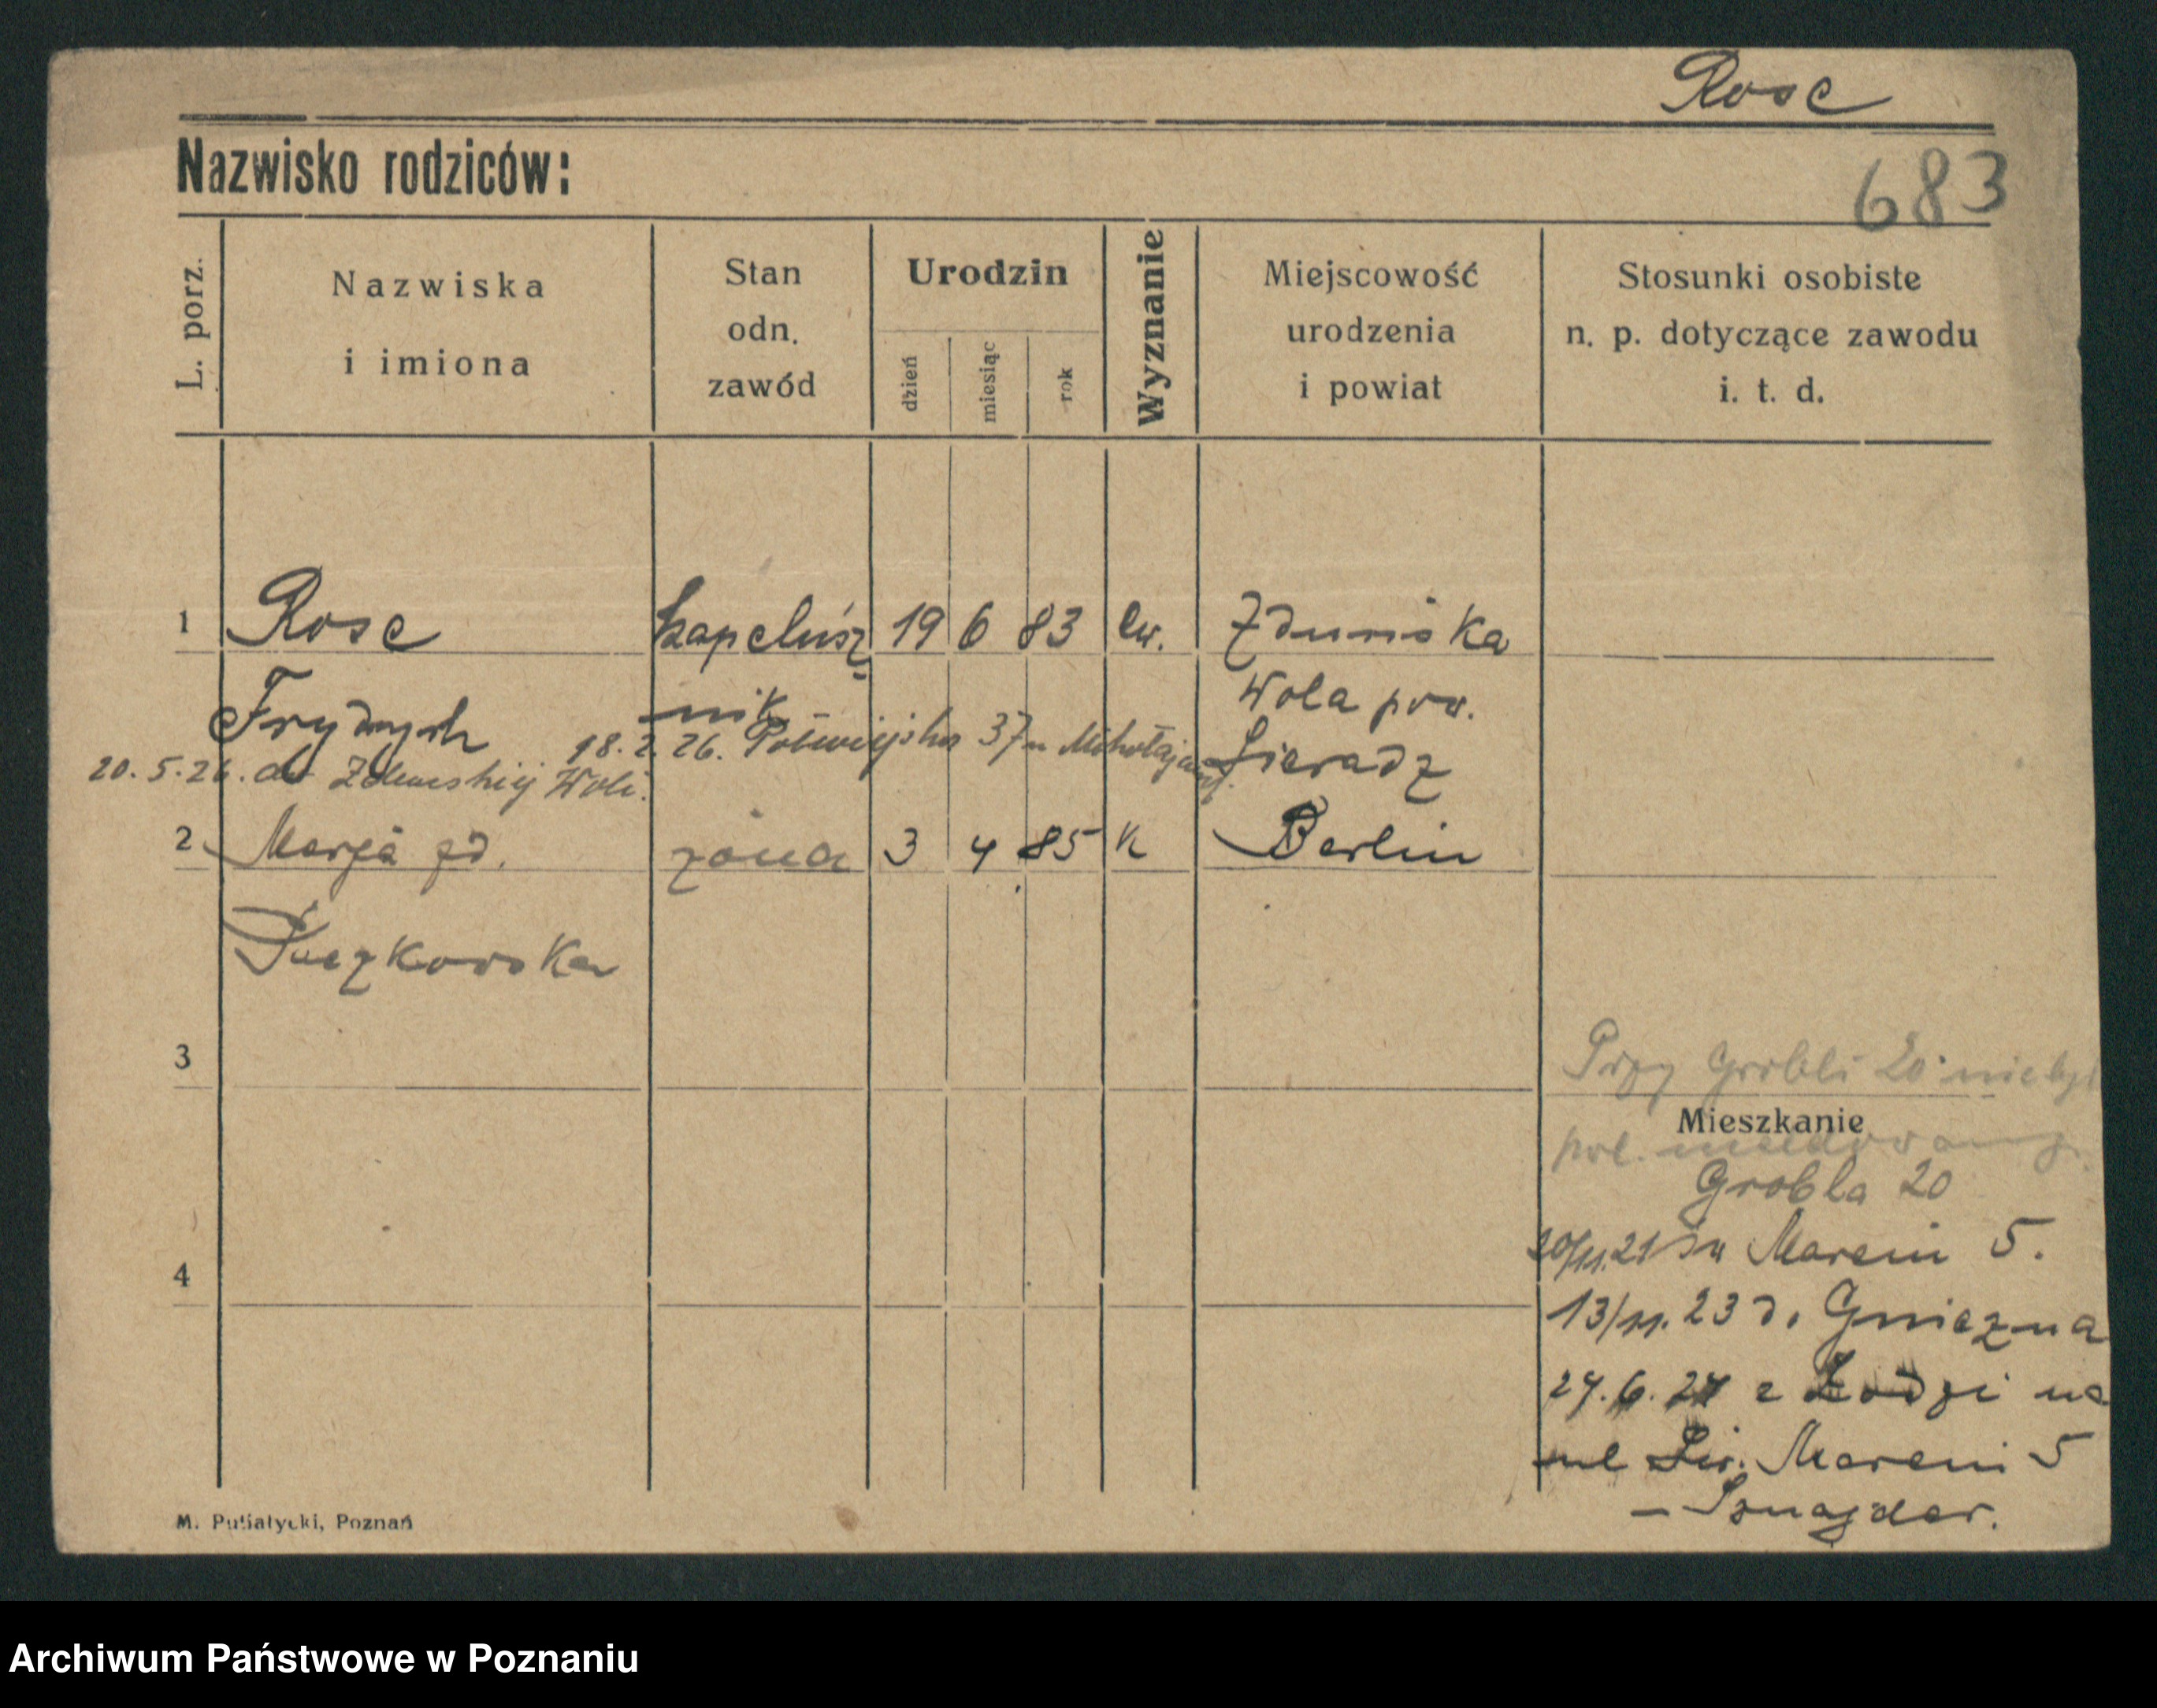 Rose
Nazwisko rodziców:
683
L. porz.
Nazwiska
i imiona
Stan
odn.
zawód
Urodzin
dzień
miesiąc
rok
Wyznanie
Miejscowość
urodzenia
i powiat
Stosunki osobiste
n. p. dotyczące zawodu
i. t. d.
1 Rose kapelusz 19 6 83 ew. Zduńska
Frydrych nik Wola pow.
18.2.26. 37 u Sieradz
20.5.26. do Zduńskiej Woli.
2 Marja zd. żona 3 4 85 K Berlin
3
Przy Grobli 20 nie był
Mieszkanie
pol. meldowany
Grobla 20
4
20/11.21 Św Marcin 5.
13/11.23 d. Gniezna
24.6.24 z Łodzi na
ul Św. Marcin 5
– Sznajder.
M. Putiatycki, Poznań
Archiwum Państwowe w Poznaniu